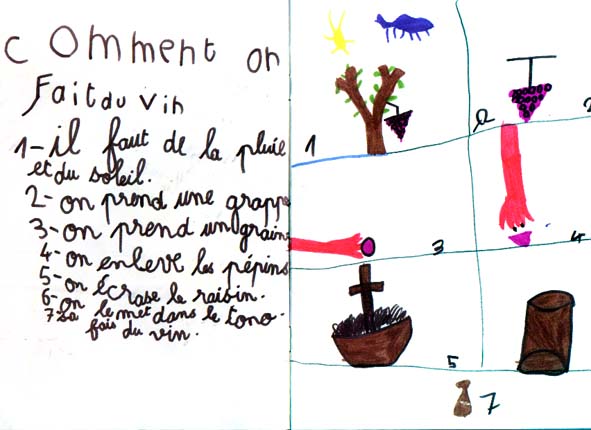 comment on
Fait du vin
1-il faut de la pluie
et du soleil.
2-on prend une grappe
3-on prend un graine
4-on enleve les pépins
5-on écrase le raisin.
6-on le met dans le tono.
7-sa fais du vin.
1
2
2
3
4
5
7